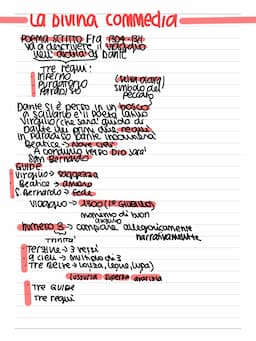 LA DIVINA COMMEDIA
POEMA SCRITTO Fra 1304-1321
va a descrivere il viaggio
nell' aldilà di Dante
Tre regni:
INFERNO
PURGATORIO
PARADISO
(selva oscura)
simbolo del
peccato
Dante si è perso in un bosco
e salvarlo è il Poeta latino
Virgilio (che sarà guida di
Dante nei primi due regni)
in Paradiso Dante incontrerà
Beatrice →
A condurlo verso Dio sarà
San Bernardo
GUIDE
Virgilio → saggezza
Beatrice → amore
S. Bernardo → Fede
VIAGGIO → 1300 (1° Giubileo)
momento di buon
auspicio
numero 3 → compare allegoricamente
narrativamente
TRINITÀ
Terzine → 3 versi
9 cieli → multiplo di 3
Tre belve → lonza, leone, lupa)
lussuria superbia avarizia
Tre GUIDE
Tre regni